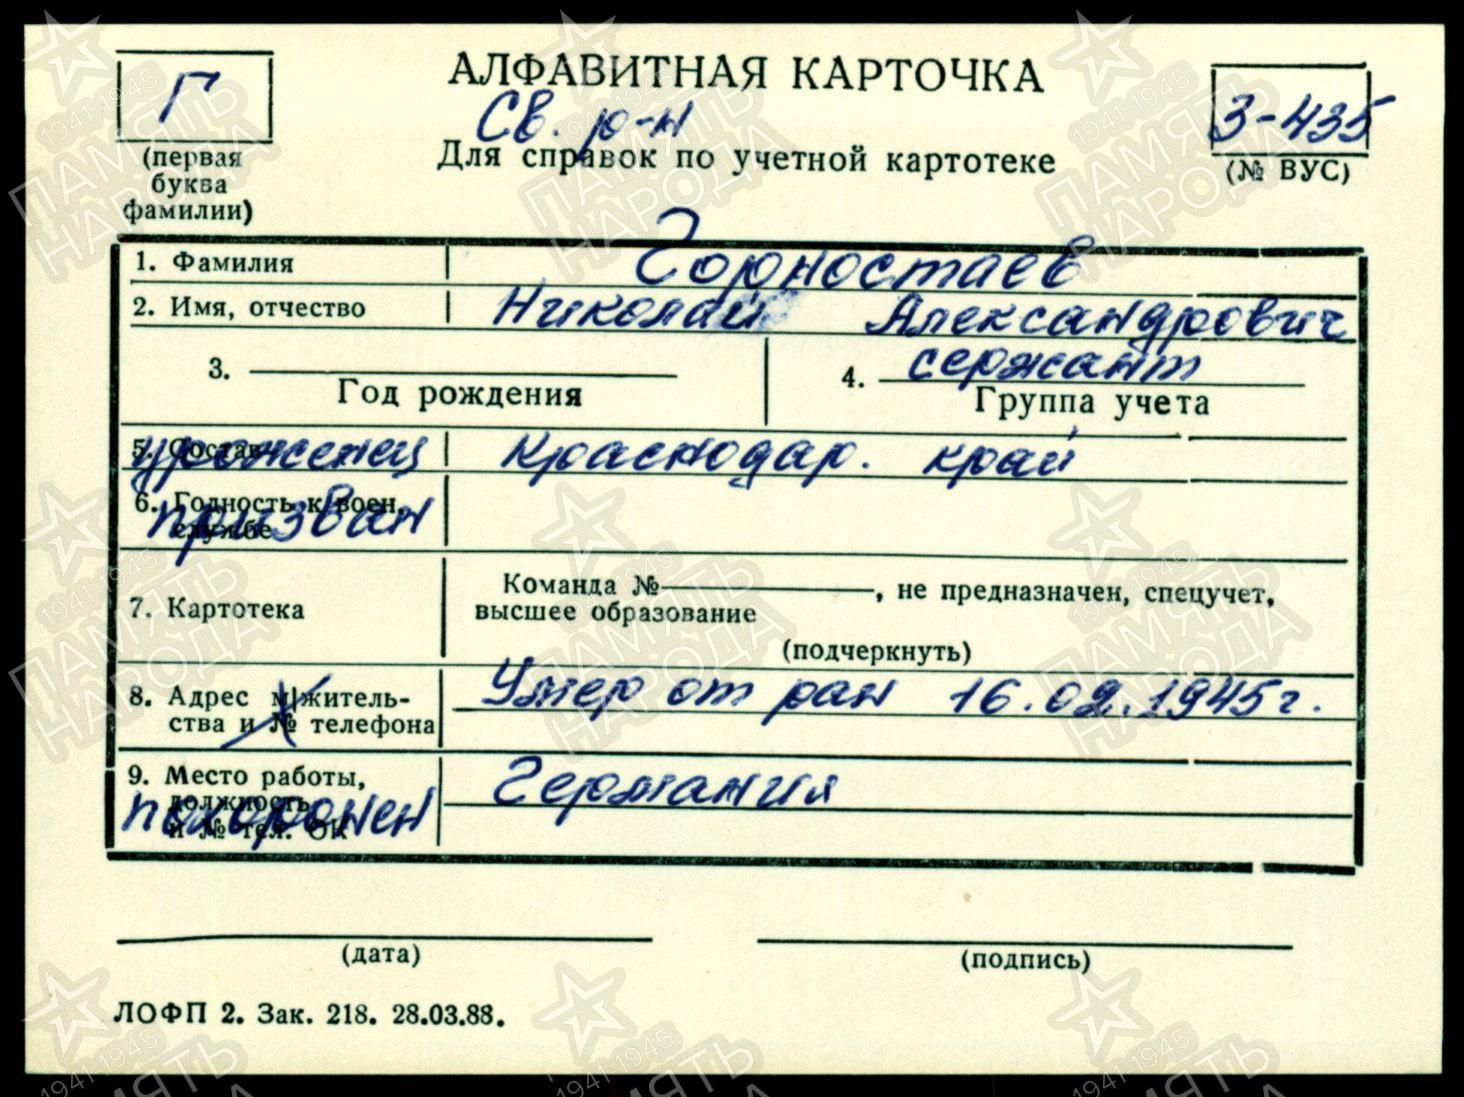 Г
АЛФАВИТНАЯ КАРТОЧКА
З-435
Св. р-н
(первая
буква
фамилии)
Для справок по учетной картотеке
(№ ВУС)
1. Фамилия Горностаев
2. Имя, отчество Николай Александрович
3. 4. сержант
Год рождения Группа учета
5. Состав уроженец Краснодар. край
6. Годность к воен.
службе призван
Команда №, не предназначен, спецучет,
7. Картотека высшее образование
(подчеркнуть)
8. Адрес м/житель- Умер от ран 16.02.1945г.
ства и № телефона
9. Место работы, Германия
должность
и № тел. ОК похоронен
(дата) (подпись)
ЛОФП 2. Зак. 218. 28.03.88.
1941-1945
ПАМЯТЬ
НАРОДА